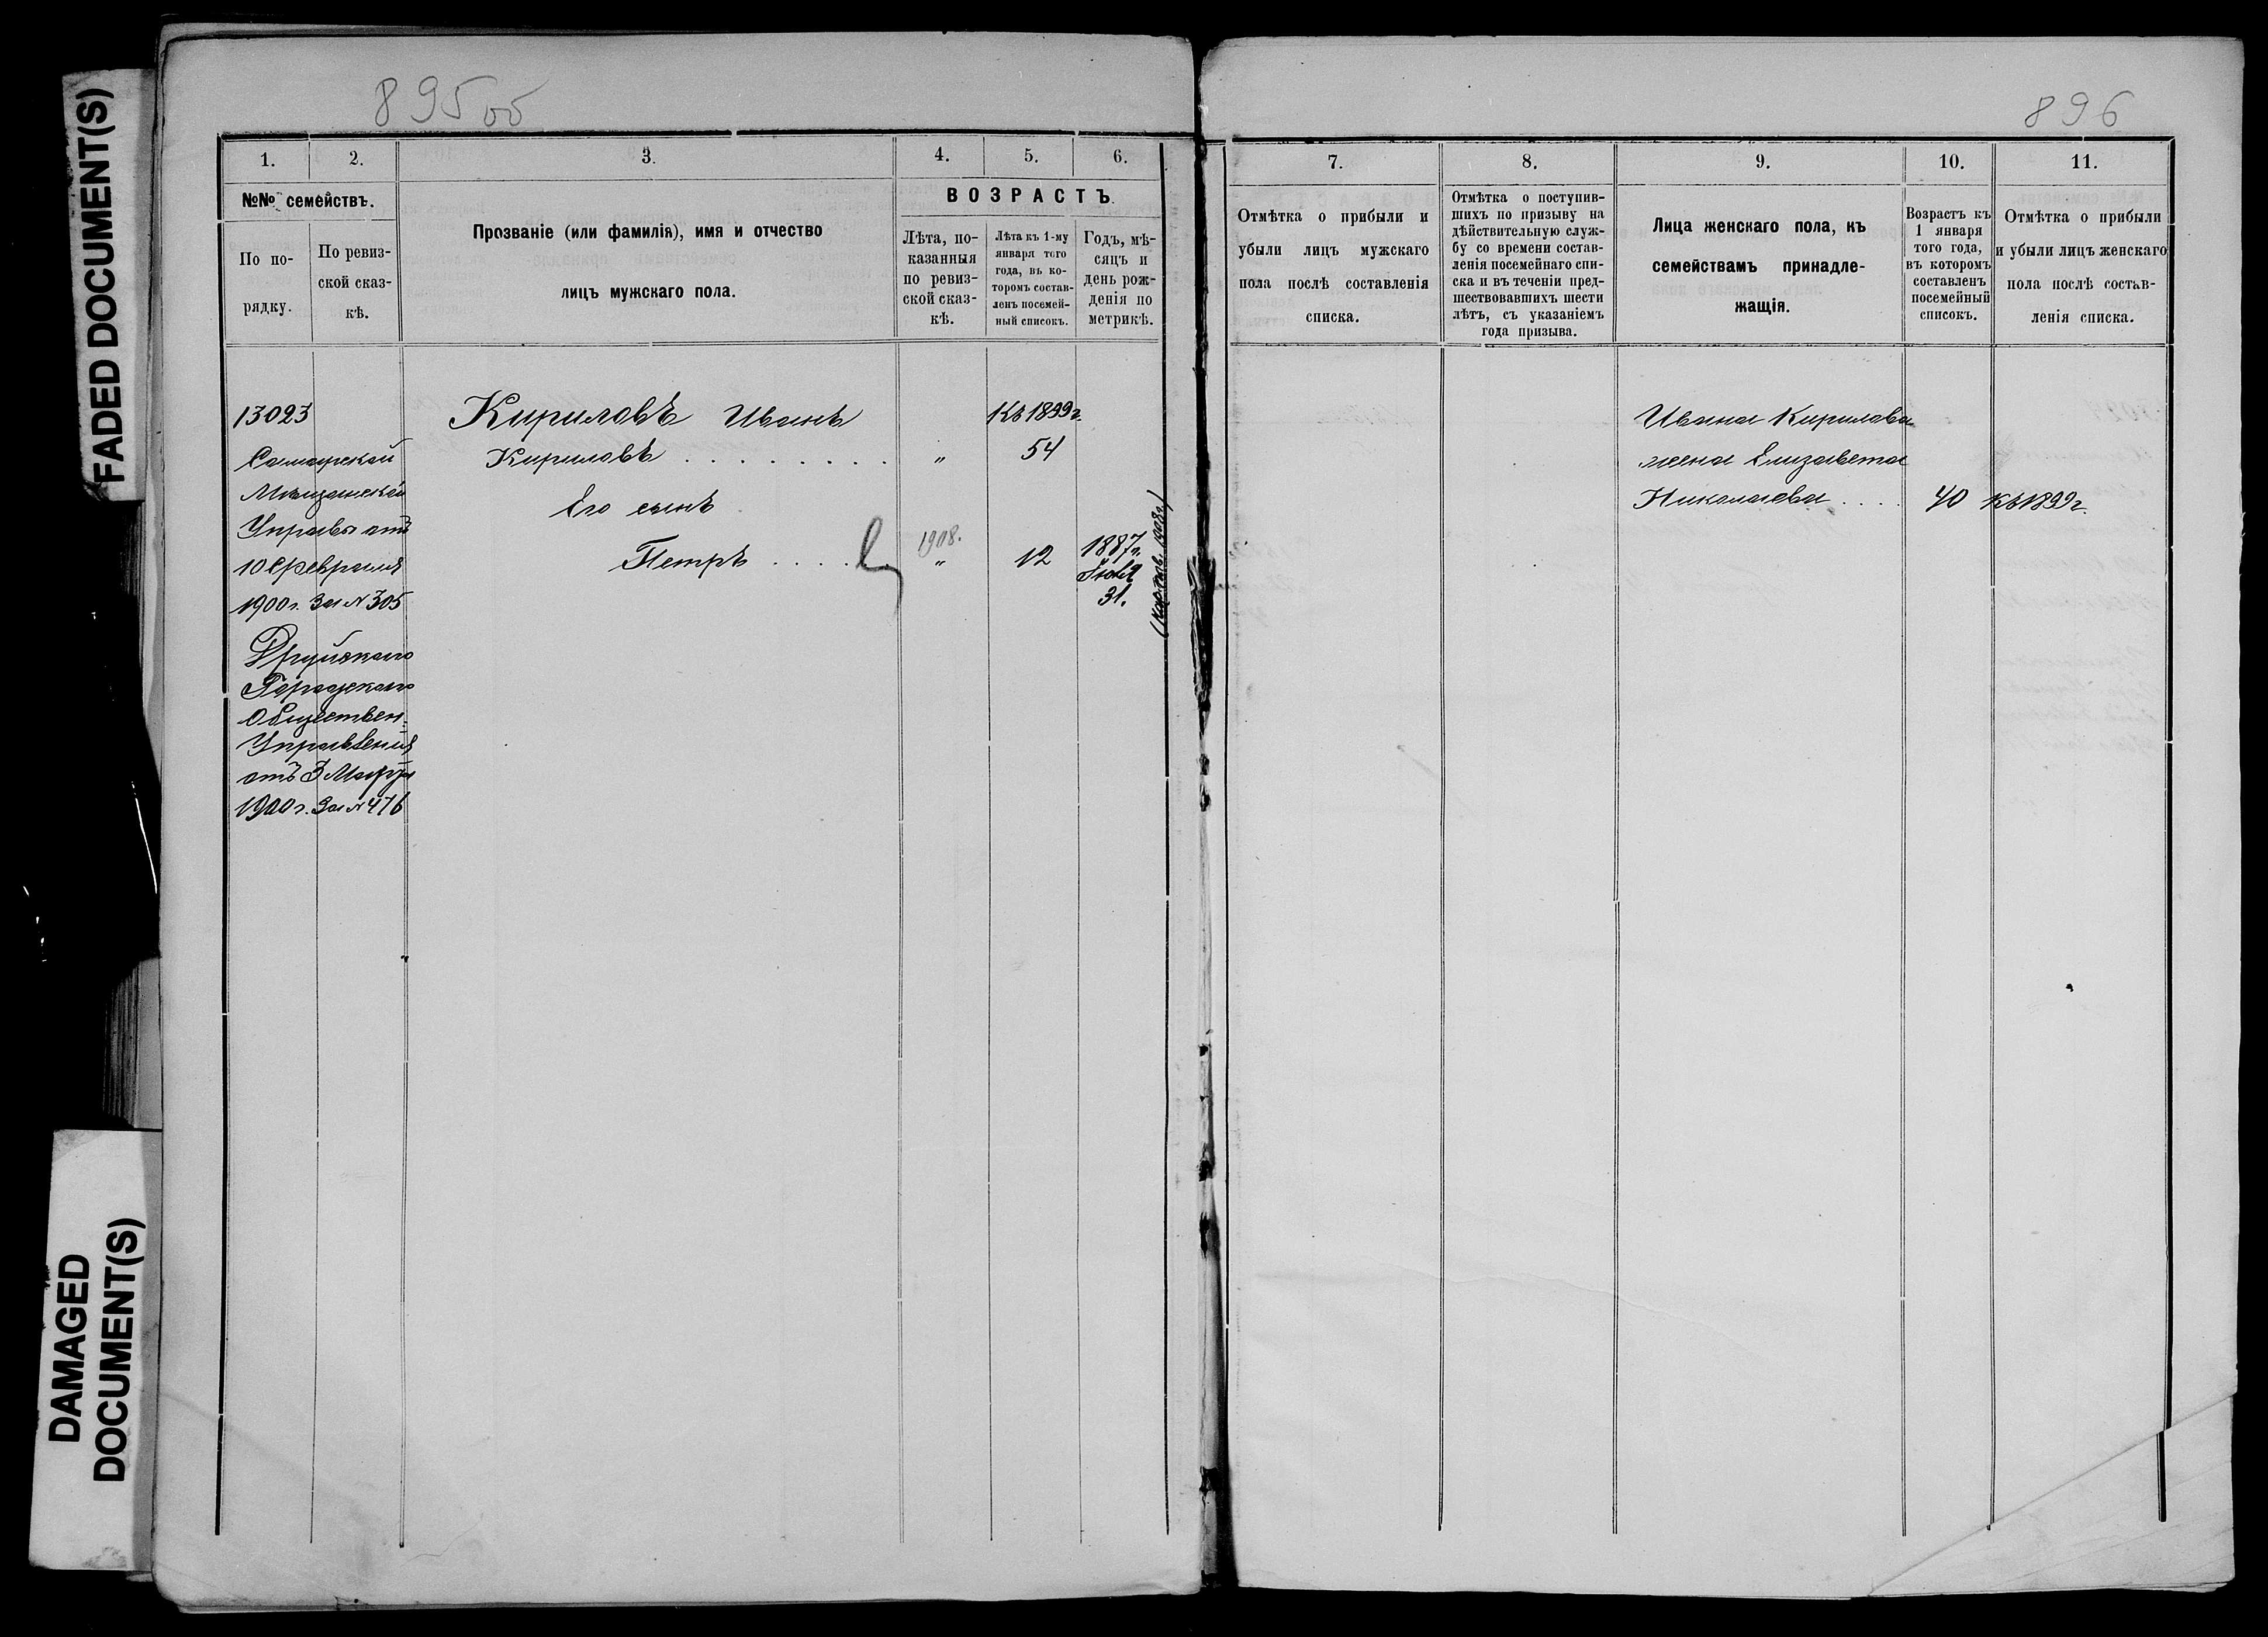 FADED DOCUMENT(S)
DAMAGED
DOCUMENT(S)
895 об
1.
2.
3.
4.
5.
6.
№№ семействъ.
По по-
рядку.
По ревиз-
ской сказ-
кѣ.
Прозваніе (или фамилія), имя и отчество
лицъ мужскаго пола.
ВОЗРАСТЪ.
Лѣта, по-
казанныя
по ревиз-
ской сказ-
кѣ.
Лѣта къ 1-му
января того
года, въ ко-
торомъ состав-
ленъ посемей-
ный списокъ.
Годъ, мѣ-
сяцъ и
день рож-
денія по
метрикѣ.
13023
Самарской
Мѣщанской
Управы отъ
10 Февраля
1900 г. За № 305
Друйскаго
Городскаго
Обществен.
Управленія
отъ 3 Марта
1900 г. За № 476
Кириловъ Иванъ
Кириловъ . . . . . . . . „
Къ 1899 г.
54
Его сынъ
Петръ . . . .
1908.
„
12
1887 г.
Іюля
31.
896
7.
8.
9.
10.
11.
Отмѣтка о прибыли и
убыли лицъ мужскаго
пола послѣ составленія
списка.
Отмѣтка о поступив-
шихъ по призыву на
дѣйствительную служ-
бу со времени состав-
ленія посемейнаго спи-
ска и въ теченіи пред-
шествовавшихъ шести
лѣтъ, съ указаніемъ
года призыва.
Лица женскаго пола, къ
семействамъ принадле-
жащія.
Возрастъ къ
1 января
того года,
въ которомъ
составленъ
посемейный
списокъ.
Отмѣтка о прибыли
и убыли лицъ женскаго
пола послѣ состав-
ленія списка.
Ивана Кирилова
жена Елизавета
Николаева . . . . 40 Къ 1899 г.